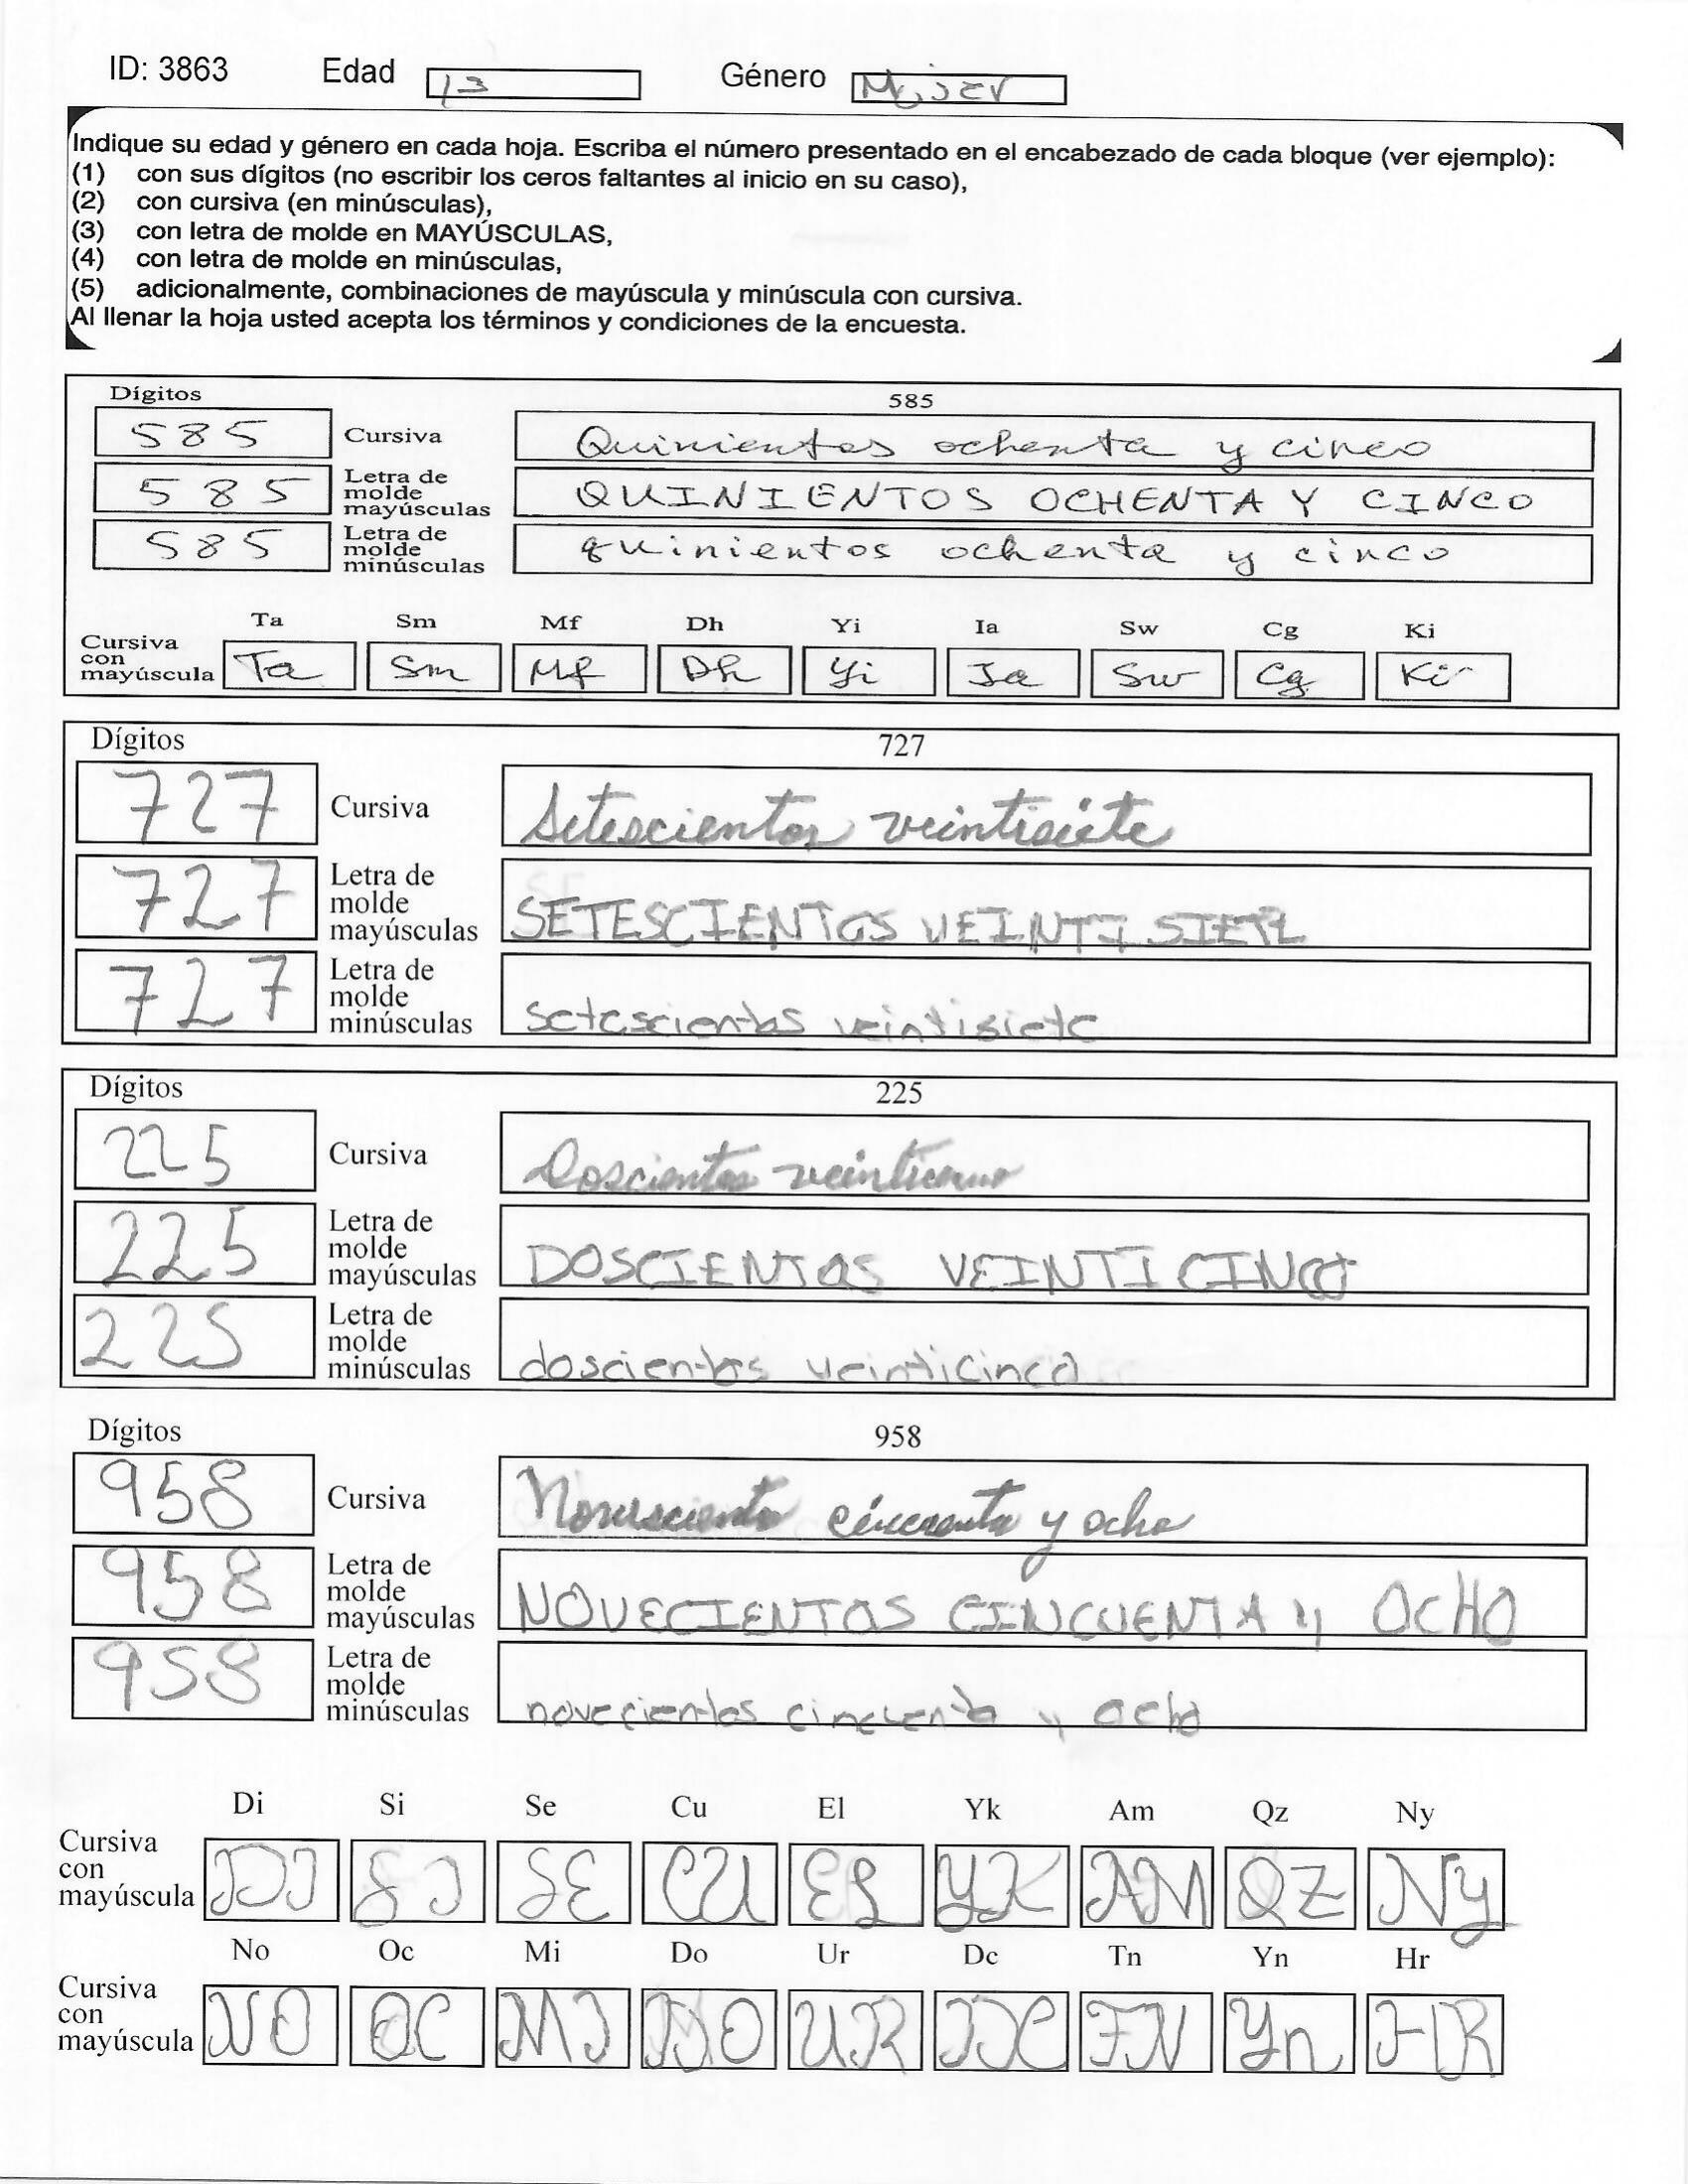 ID: 3863 Edad 13 Género Mujer
Indique su edad y género en cada hoja. Escriba el número presentado en el encabezado de cada bloque (ver ejemplo):
(1) con sus dígitos (no escribir los ceros faltantes al inicio en su caso),
(2) con cursiva (en minúsculas),
(3) con letra de molde en MAYÚSCULAS,
(4) con letra de molde en minúsculas,
(5) adicionalmente, combinaciones de mayúscula y minúscula con cursiva.
Al llenar la hoja usted acepta los términos y condiciones de la encuesta.
Dígitos 585
585 Cursiva Quinientos ochenta y cinco
585 Letra de molde mayúsculas QUINIENTOS OCHENTA Y CINCO
585 Letra de molde minúsculas quinientos ochenta y cinco
Ta Sm Mf Dh Yi Ia Sw Cg Ki
Cursiva con mayúscula Ta Sm Mf Dh Yi Ia Sw Cg Ki
Dígitos 727
727 Cursiva Setescientos veintisiete
727 Letra de molde mayúsculas SETESCIENTOS VEINTI SIETE
727 Letra de molde minúsculas setescientos veintisiete
Dígitos 225
225 Cursiva Doscientos
225 Letra de molde mayúsculas DOSCIENTOS VEINTI CINCO
225 Letra de molde minúsculas doscientos veinticinco
Dígitos 958
958 Cursiva y ocho
958 Letra de molde mayúsculas NOVECIENTOS CINCUENTA y OCHO
958 Letra de molde minúsculas novecientos cincuenta y ocho
Di Si Se Cu El Yk Am Qz Ny
Cursiva con mayúscula DI SI SE CU EL YK AM QZ Ny
No Oc Mi Do Ur Dc Tn Yn Hr
Cursiva con mayúscula NO OC MI DO UR DC TN Yn HR